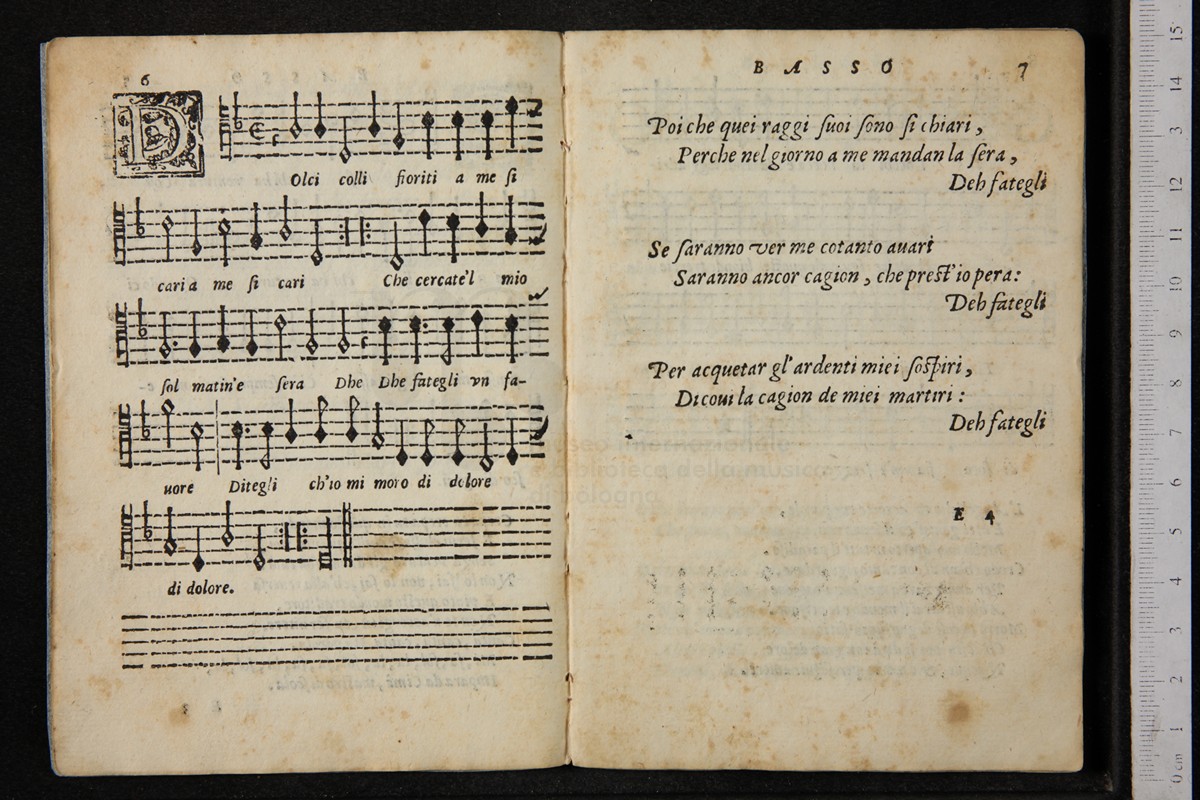 6
D
Olci colli fioriti a me si
cari a me si cari Che cercate'l mio
sol matin'e sera Dhe Dhe fategli vn fa-
uore Ditegli ch'io mi moro di dolore
di dolore.
BASSO 7
Poi che quei raggi suoi sono si chiari,
Perche nel giorno a me mandan la sera,
Deh fategli
Se saranno ver me cotanto auari
Saranno ancor cagion, che prest'io pera:
Deh fategli
Per acquetar gl'ardenti miei sospiri,
Di coui la cagion de miei martiri:
Deh fategli
E 4
museo internazionale
e biblioteca della musica
di bologna
0 cm 1 2 3 4 5 6 7 8 9 10 11 12 13 14 15